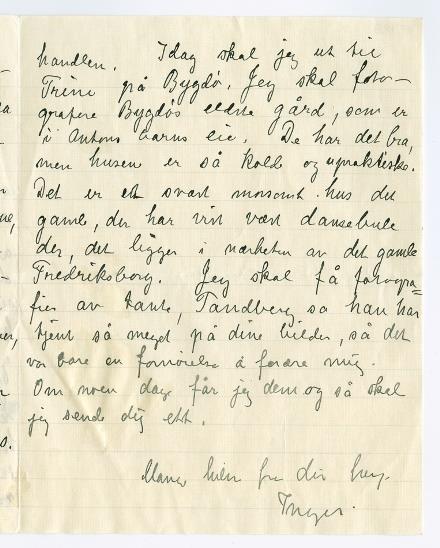 handlen. Idag skal jeg ut til
Trine på Bygdø. Jeg skal foto-
grafere Bygdøs eldste gård, som er
i Antons barns eie. De har det bra,
men husene er så kolde og upraktiske.
Det er et svært morsomt hus det
gamle, der har vist vært dansebule
der, det ligger i nærheten av det gamle
Fredriksborg. Jeg skal få fotogra=
fier av tante, Tandberg sa han har
tjent så meget på dine bilder, så det
var bare en fornøielse å forære mig.
Om noen dage får jeg dem og så skal
jeg sende dig ett.
Mange hilsn fra din
Inger.